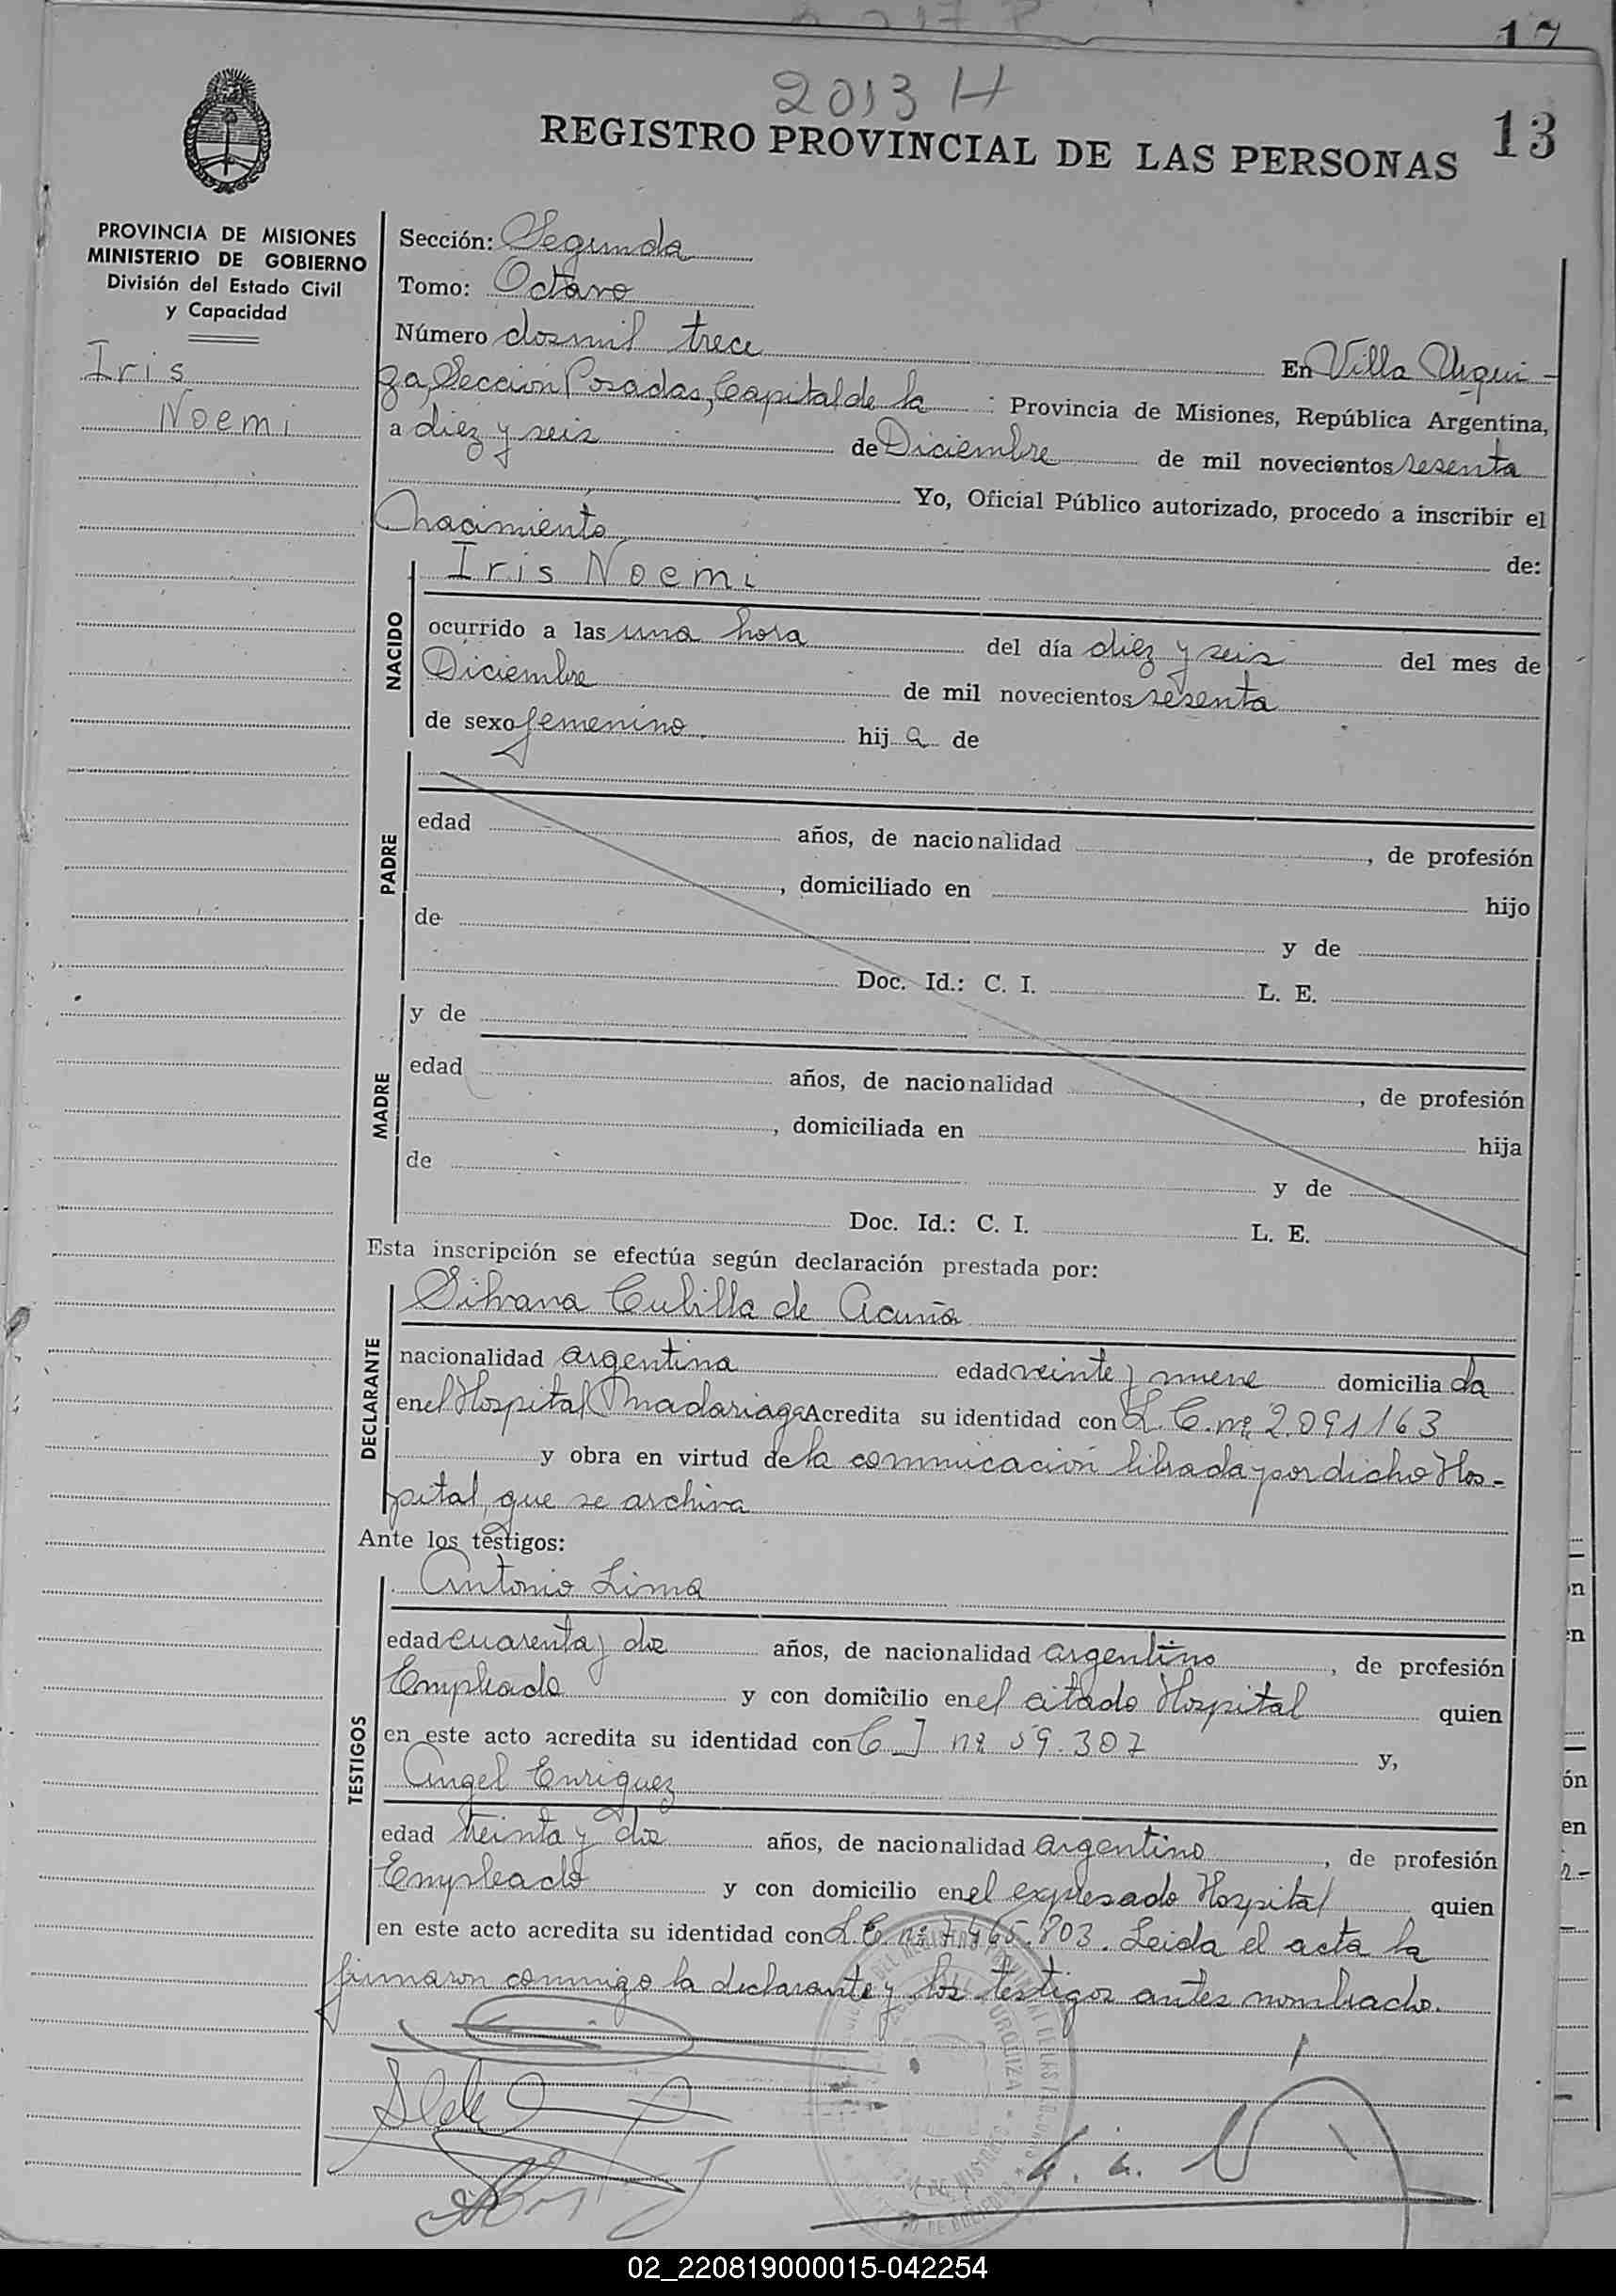 17
2013 H
REGISTRO PROVINCIAL DE LAS PERSONAS 13
PROVINCIA DE MISIONES
MINISTERIO DE GOBIERNO
División del Estado Civil
y Capacidad
Iris
Noemi
Sección: Segunda
Tomo: Octavo
Número dosmil trece En Villa Urqui-
za, Sección Posadas, Capital de la : Provincia de Misiones, República Argentina,
a diez y seis de Diciembre de mil novecientos sesenta
Yo, Oficial Público autorizado, procedo a inscribir el
nacimiento de:
NACIDO
Iris Noemi
ocurrido a las una hora del día diez y seis del mes de
Diciembre de mil novecientos sesenta
de sexo femenino. hij a de
PADRE
edad años, de nacionalidad , de profesión
, domiciliado en hijo
de y de
Doc. Id.: C. I. L. E.
MADRE
y de
edad años, de nacionalidad , de profesión
, domiciliada en hija
de y de
Doc. Id.: C. I. L. E.
Esta inscripción se efectúa según declaración prestada por:
DECLARANTE
Silvana Cubilla de Acuña
nacionalidad argentina edad veinte y nueve domicilia da
en el Hospital Madariaga Acredita su identidad con L. C. nº 2.091163
y obra en virtud de la comunicación librada por dicho Hos-
pital, que se archiva
Ante los testigos:
TESTIGOS
Antonio Lima
edad cuarenta y dos años, de nacionalidad argentino , de profesión
Empleado y con domicilio en el citado Hospital quien
en este acto acredita su identidad con C I nº 59.307 y,
Angel Enriquez
edad treinta y dos años, de nacionalidad argentino , de profesión
Empleado y con domicilio en el expresado Hospital quien
en este acto acredita su identidad con nº 7.465.803. Leida el acta la
firmaron conmigo la declarante y los testigos antes nombrado.
URQUIZA
02_220819000015-042254